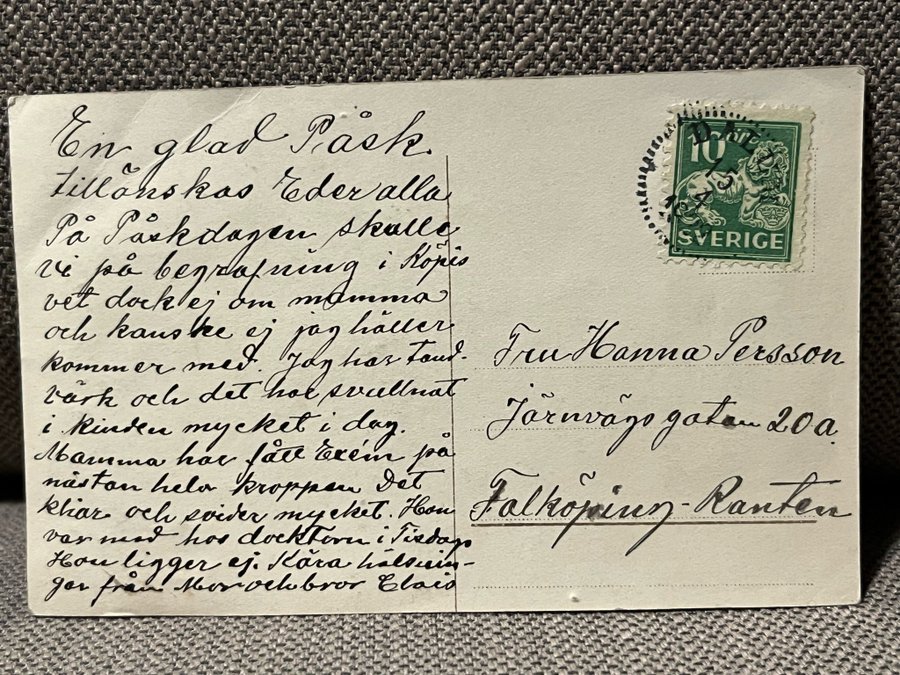 En glad Påsk
tillönskas Eder alla
På Påskdagen skulle
vi på begrafning i Köpis
vet dock ej om mamma
och kanske ej jag häller
kommer med. Jag har tand-
värk och det har svullnat
i kinden mycket i dag.
Mamma har fått Exém på
nästan hela kroppen Det
kliar och svider mycket. Hon
var med hos docktorn i Tisdags
Hon ligger ej. Kära hälsnin-
gar från Mor och bror
10 ÖRE
SVERIGE
Fru Hanna Persson
Järnvägsgatan 20a.
Falköping-Ranten